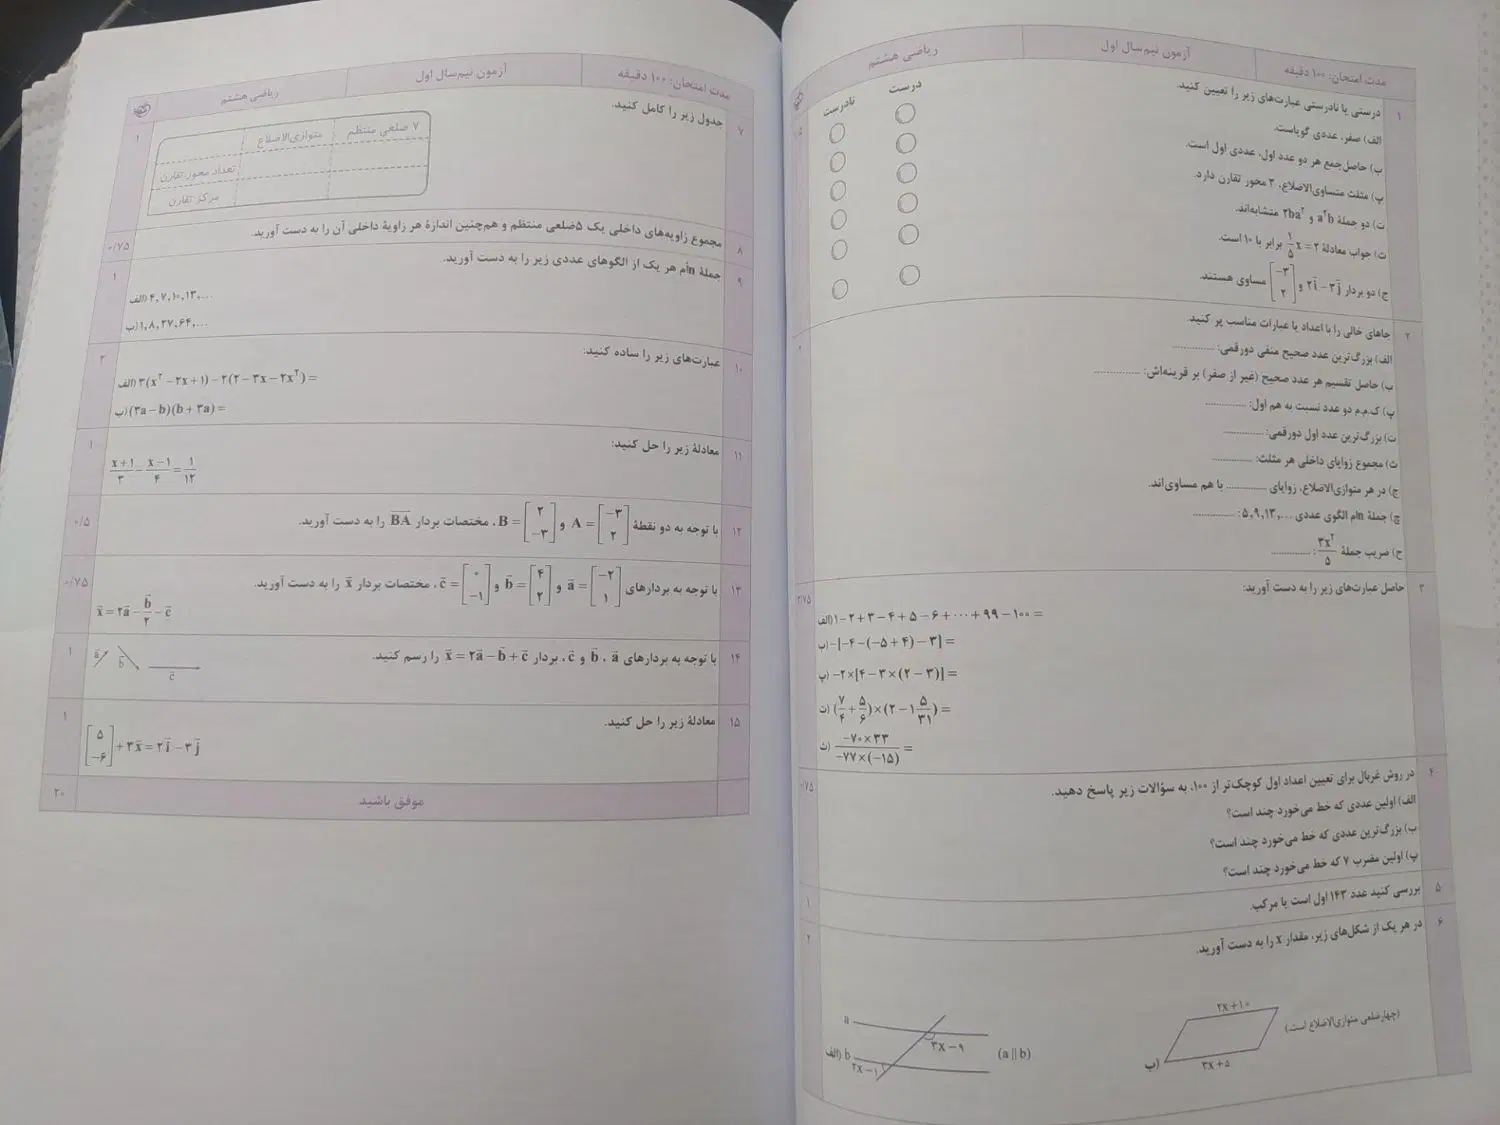 مدت امتحان: ۱۰۰ دقیقه
آزمون نیم‌سال اول
ریاضی هشتم
۱
درستی یا نادرستی عبارت‌های زیر را تعیین کنید.
درست
نادرست
الف) صفر، عددی گویاست.
ب) حاصل‌جمع هر دو عدد اول، عددی اول است.
پ) مثلث متساوی‌الاضلاع، ۳ محور تقارن دارد.
ت) دو جملهٔ a²b و ۲ba² متشابه‌اند.
ث) جواب معادلهٔ ۱/۵ x = ۲ برابر با ۱۰ است.
ج) دو بردار ۲i − ۳j و [−۳ ۲] مساوی هستند.
۲
جاهای خالی را با اعداد یا عبارات مناسب پر کنید.
الف) بزرگ‌ترین عدد صحیح منفی دورقمی: ............
ب) حاصل تقسیم هر عدد صحیح (غیر از صفر) بر قرینه‌اش: ............
پ) ک.م.م دو عدد نسبت به هم اول: ............
ت) بزرگ‌ترین عدد اول دورقمی: ............
ث) مجموع زوایای داخلی هر مثلث: ............
ج) در هر متوازی‌الاضلاع، زوایای ............ با هم مساوی‌اند.
چ) جملهٔ nام الگوی عددی ۵, ۹, ۱۳, ...: ............
ح) ضریب جملهٔ ۳x²/۵: ............
۳
حاصل عبارت‌های زیر را به دست آورید:
الف) ۱−۲+۳−۴+۵−۶+⋯+۹۹−۱۰۰ =
ب) −[−۴−(−۵+۴)−۳] =
پ) −۲×[۴−۳×(۲−۳)] =
ت) (۷/۴+۵/۶)×(۲−۱ ۵/۳۱) =
ث) −۷۰×۳۳/−۷۷×(−۱۵) =
۴
در روش غربال برای تعیین اعداد اول کوچک‌تر از ۱۰۰، به سؤالات زیر پاسخ دهید.
الف) اولین عددی که خط می‌خورد چند است؟
ب) بزرگ‌ترین عددی که خط می‌خورد چند است؟
پ) اولین مضرب ۷ که خط می‌خورد چند است؟
۵
بررسی کنید عدد ۱۴۳ اول است یا مرکب.
۱
۶
در هر یک از شکل‌های زیر، مقدار x را به دست آورید.
۲
الف) a b ۳x−۹ ۲x−۱ (a || b)
ب) ۲x+۱۰ ۳x+۵ (چهارضلعی متوازی‌الاضلاع است)
مدت امتحان: ۱۰۰ دقیقه
آزمون نیم‌سال اول
ریاضی هشتم
۷
جدول زیر را کامل کنید.
۱
۷ ضلعی منتظم
متوازی‌الاضلاع
تعداد محور تقارن
مرکز تقارن
۸
مجموع زاویه‌های داخلی یک ۵ضلعی منتظم و هم‌چنین اندازهٔ هر زاویهٔ داخلی آن را به دست آورید.
۰/۷۵
۹
جملهٔ nام هر یک از الگوهای عددی زیر را به دست آورید.
۱
الف) ۴, ۷, ۱۰, ۱۳, ...
ب) ۱, ۸, ۲۷, ۶۴, ...
۱۰
عبارت‌های زیر را ساده کنید:
۲
الف) ۳(x²−۲x+۱)−۲(۲−۳x−۲x²) =
ب) (۳a−b)(b+۳a) =
۱۱
معادلهٔ زیر را حل کنید:
۱
x+۱/۳ − x−۱/۴ = ۱/۱۲
۱۲
با توجه به دو نقطهٔ A = [−۳ ۲] و B = [۲ −۳]، مختصات بردار BA را به دست آورید.
۰/۵
۱۳
با توجه به بردارهای a = [−۲ ۱] و b = [۴ ۲] و c = [۰ −۱]، مختصات بردار x را به دست آورید.
۰/۷۵
x = ۲a − b/۲ − c
۱۴
با توجه به بردارهای a، b و c، بردار x = ۲a − b + c را رسم کنید.
۱
a b c
۱۵
معادلهٔ زیر را حل کنید.
۱
[۵ −۶] + ۳x = ۲i − ۳j
موفق باشید
۲۰